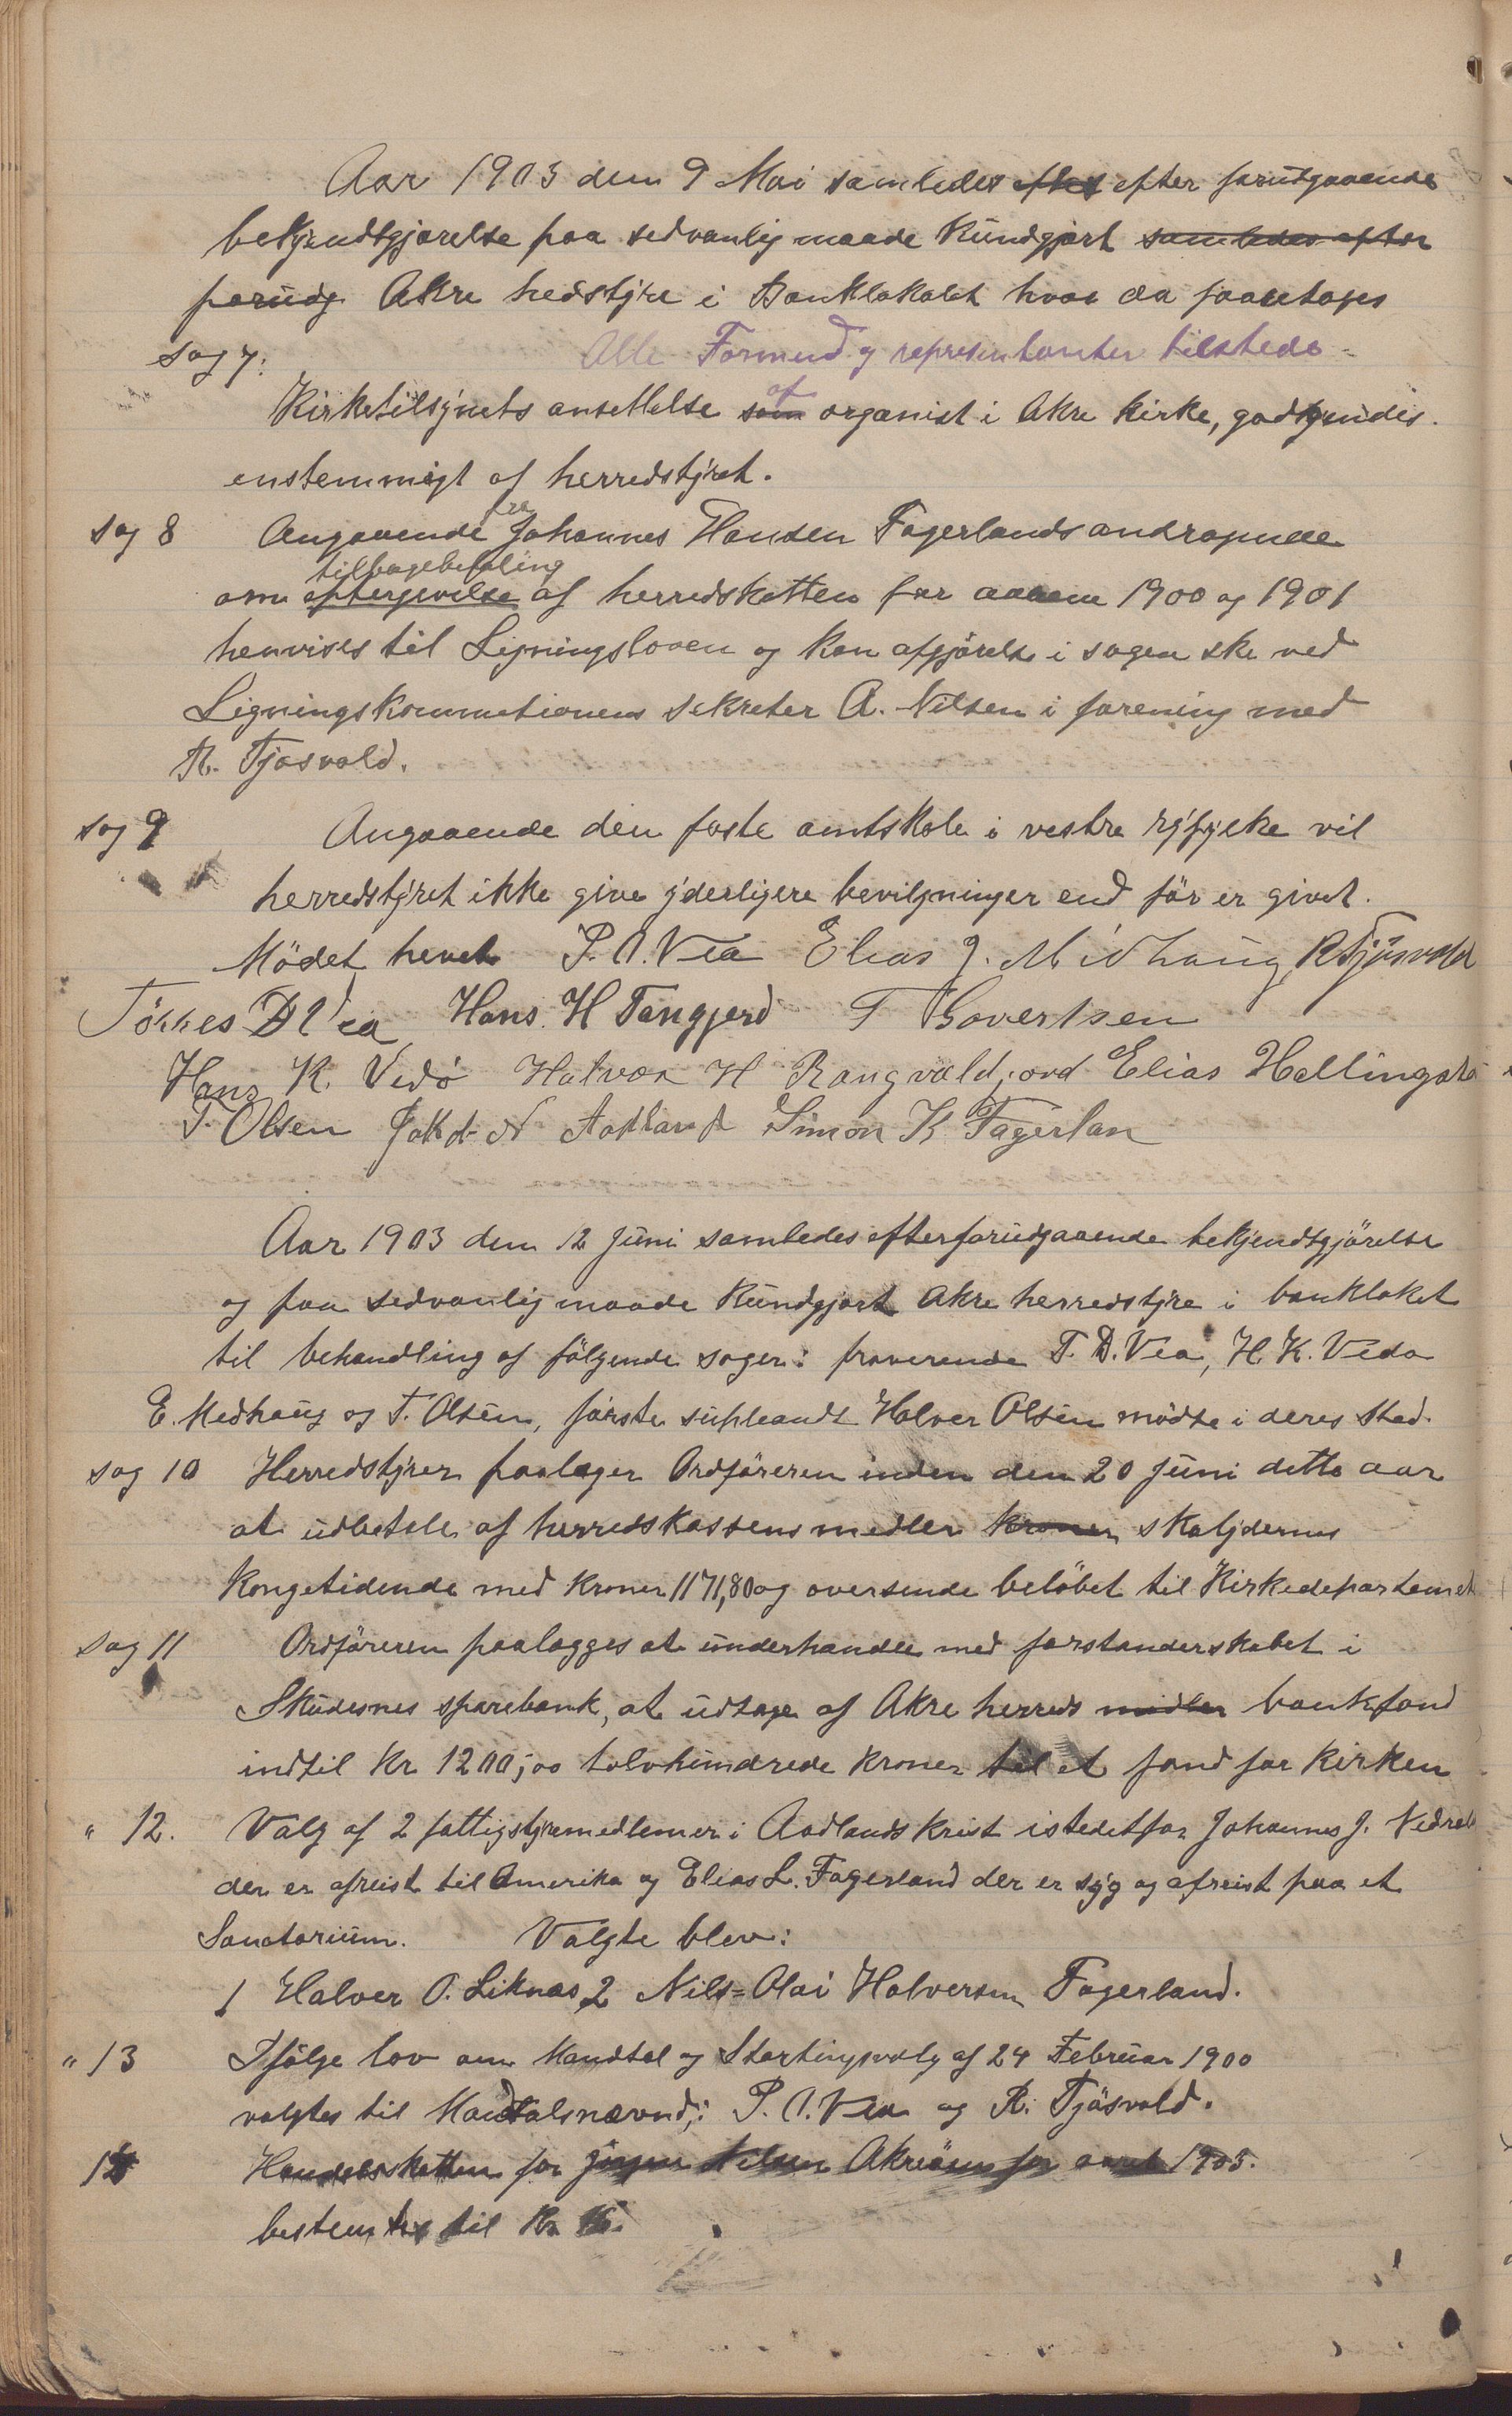 Aar 1903 den 9 Mai samledes efter efter forutgaaende
bekjendtgjørelse paa sedvanlig maade kundgjort samledes efter
forudg Akre hedstyre i Banklokalet hvor da foretoges
sag 7. Alle Formend og representanter tilstede
Kirketilsynets ansettelse som af organist i Akre kirke, godkjendes
enstemmigt af herredstyret.
sag 8 Angaaende fra Johannes Hansen Fagerlands andragende
tilbagebetaling
om eftergivelse af herredskatten for aarene 1900 og 1901
henvises til Ligningsloven og kan afgjørelse i sagen ske ved
Ligningskommetionens sekreter A. Nilsen i forening med
R. Tjøsvold.
sag 9 Angaaende den faste amtskole i vestre ryfylke vil
herredstyret ikke give yderligere bevilgninger end før er givet.
Mödet hevet P. A. Vea Elias J. Midhaug R Tjøsvold
Törres D Vea Hans. H Tangjerd T Govertsen
Hans K. Vedø Halvor H Rangvaldjord Elias Hellingsto
T. Olsen Jakob N Aadland Simon K Fagerlan
Aar 1903 den 12 Juni samledes efter forudgaaende bekjendtgjörelse
og paa sedvanlig maade kundgjort Akre herredstyre i bankloket
til behandling af fölgende sager: fraverende T. D. Vea, H. K. Vedø
E. Medhaug og T. Olsen, første supleandt Halver Olsen mødte i deres sted.
sag 10 Herredstyrer paalæger Ordføreren inden den 20 Juni dette aar
at udbetale af herredskassens medler kroner skalydernes
Kongetidende med kroner 1171,80 og oversende beløbet til Kirkedepartemet
Sag 11 Ordføreren paalægges at underhandle med forstanderskabet i
Skudesnes sparebank, at udtage af Akre herreds midler bankfond
indtil Kr 1200,00 tolvhundrede kroner til et fond for kirken
" 12. Valg af 2 fattigstyremedlemer i Aadlands krest istedetfor Johannes J. Vedrak
der er afreist til Amerika og Elias L. Fagerland der er syg og afreist paa et
Sanatorium. Valgte blev:
1 Halver O. Liknas 2 Nils-Olai Halversen Fagerland.
" 13 Ifølge lov om Mandtal og Stortingsvalg af 24 Februar 1900
valgtes til Mandtalsnævnd: P. A. Vea og R. Tjøsvold.
14 Handelsskatten for Jörgen Nilsen Akreöen for aaret 1903.
bestemtes til Kr